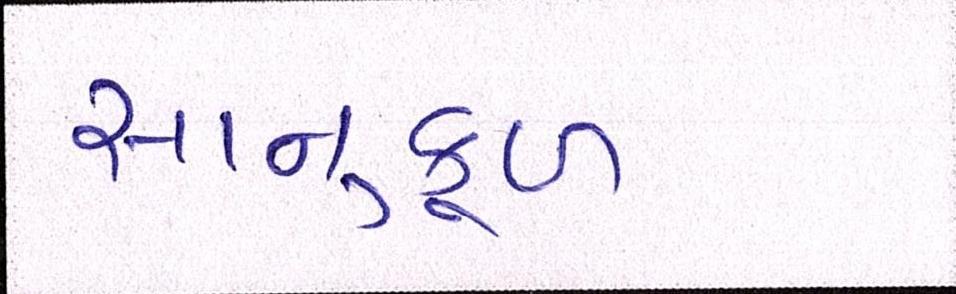 સાનુકૂળ